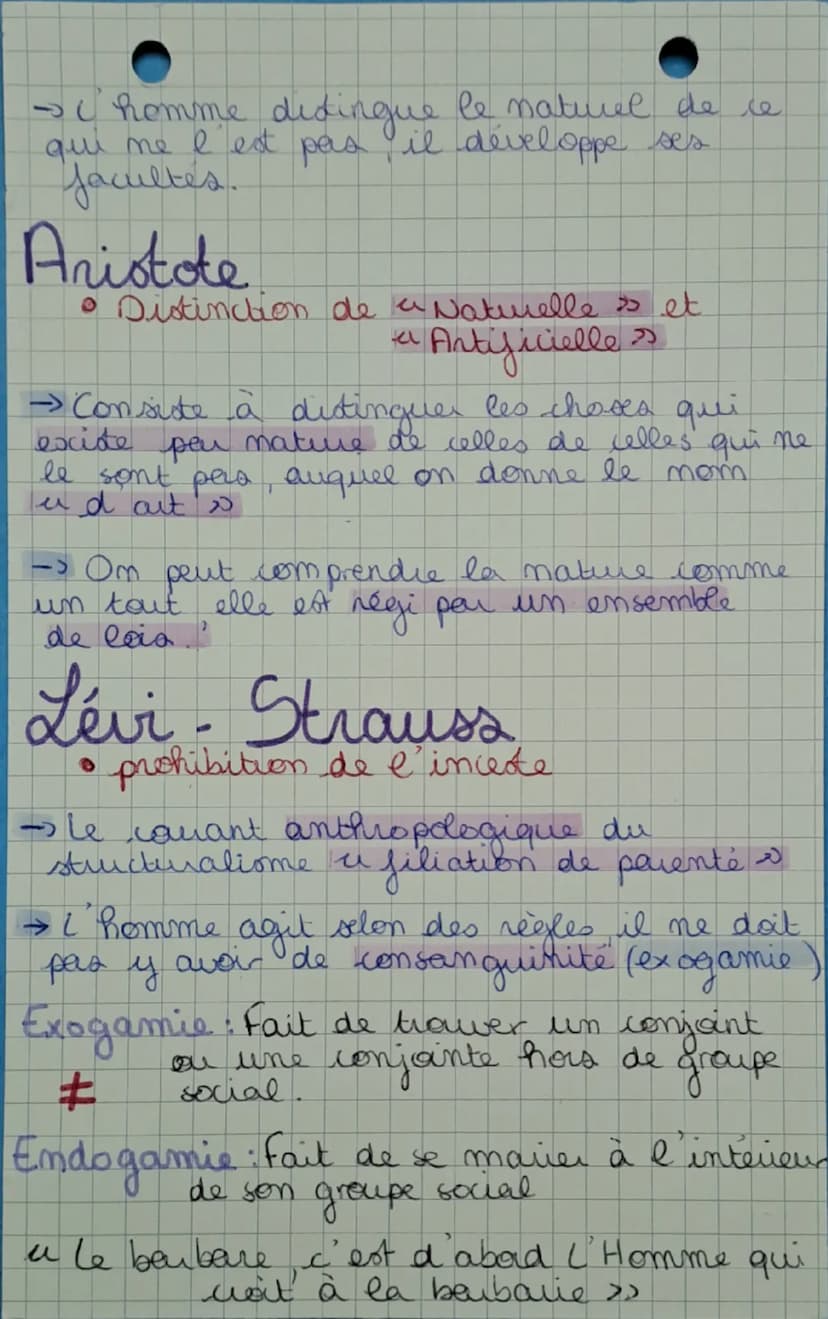 → L'homme distingue le naturel de ce
qui ne l'est pas, il développe ses
facultés.
Aristote
• Distinction de « Naturelle » et
« Artificielle »
→ Consiste à distinguer les choses qui
existe par nature de celles de celles qui ne
le sont pas, auquel on donne le nom
« d'art »
→ On peut comprendre la nature comme
un tout, elle est régi par un ensemble
de lois.
Lévi-Strauss
• prohibition de l'inceste
→ Le courant anthropologique du
structuralisme « filiation de parenté »
→ L'homme agit selon des règles, il ne doit
pas y avoir de consanguinité (exogamie)
Exogamie : Fait de trouver un conjoint
ou une conjointe hors de groupe
≠ social.
Endogamie : Fait de se marier à l'intérieur
de son groupe social
« Le barbare, c'est d'abord L'Homme qui
croit à la barbarie »